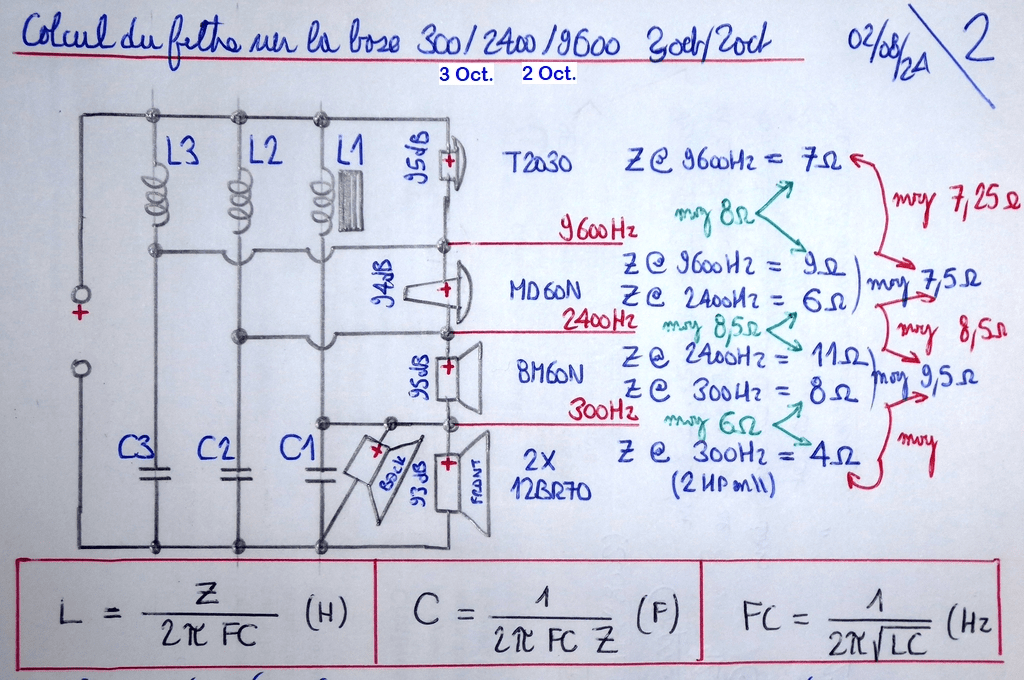 Calcul du filtre sur la base 300/2400/9600 3oct/2oct
02/08/24
2
3 Oct. 2 Oct.
L3 L2 L1
95dB
T2030 Z @ 9600Hz = 7Ω
moy 8Ω
moy 7,25Ω
9600Hz
94dB
MD60N
Z @ 9600Hz = 9Ω
Z @ 2400Hz = 6Ω
moy 7,5Ω
2400Hz
moy 8,5Ω
moy 8,5Ω
95dB
8M60N
Z @ 2400Hz = 11Ω
Z @ 300Hz = 8Ω
moy 9,5Ω
300Hz
moy 6Ω
moy
C3 C2 C1
BACK
93dB
FRONT
2X
12BR70
Z @ 300Hz = 4Ω
(2 HP en //)
L = Z / 2π FC (H)
C = 1 / 2π FC Z (F)
FC = 1 / 2π√LC (Hz